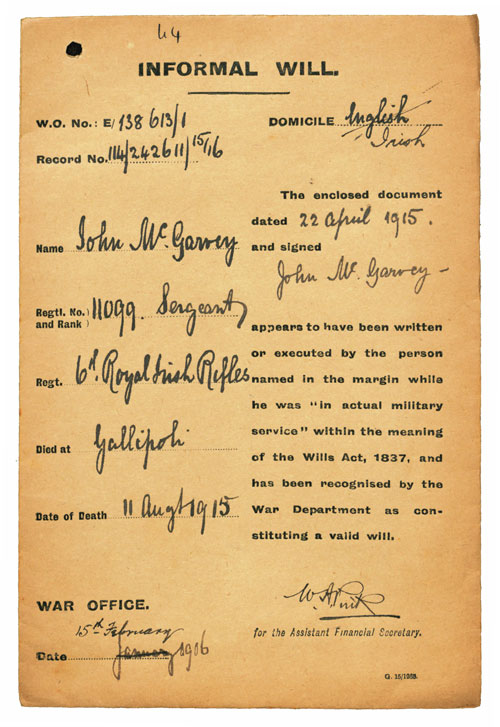 44
INFORMAL WILL.
W.O. No.: E/138613/1
Record No. 114/242611/15/16
DOMICILE English
Irish
Name John Mc. Garvey
Regtl. No. and Rank } 11099. Sergeant
Regt. 6th Royal Irish Rifles
Died at Gallipoli
Date of Death 11 Augt 1915
The enclosed document
dated 22 April 1915.
and signed
John Mc. Garvey -
appears to have been written
or executed by the person
named in the margin while
he was "in actual military
service" within the meaning
of the Wills Act, 1837, and
has been recognised by the
War Department as con-
stituting a valid will.
WAR OFFICE.
15th February
Date January 1906
for the Assistant Financial Secretary.
G. 15/1368.